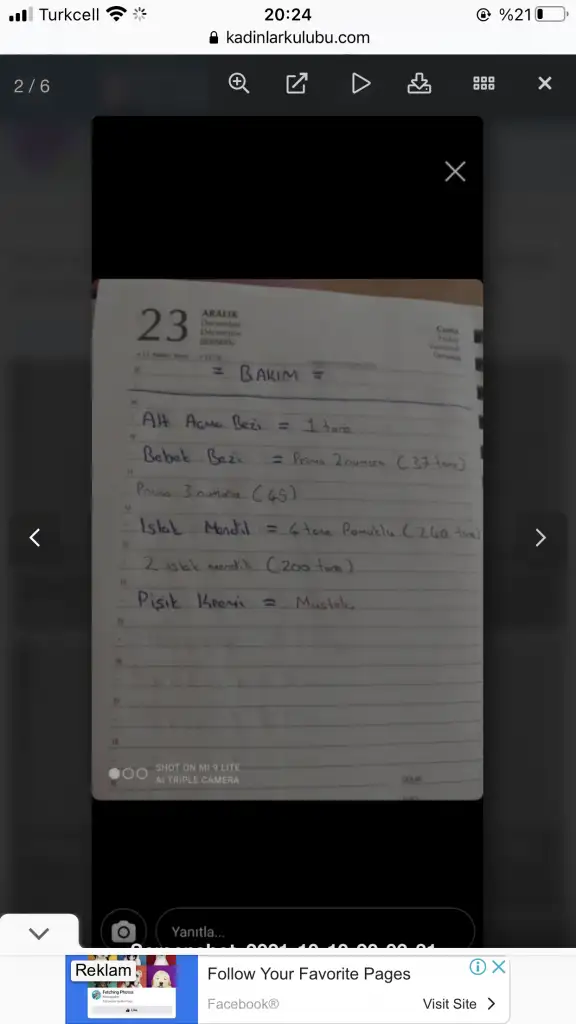 Turkcell 20:24 %21
kadinlarkulubu.com
2 / 6
23 ARALIK
= BAKIM =
Alt Açma Bezi = 1 tane
Bebek Bezi = Prima 2 numara (37 tane)
Prima 3 numara (45)
Islak Mendil = 4 tane Pamuklu (240 tane)
2 ıslak mendil (200 tane)
Pişik Kremi = Mustela
SHOT ON MI 9 LITE
AI TRIPLE CAMERA
Yanıtla...
Reklam
Follow Your Favorite Pages
Facebook®
Visit Site